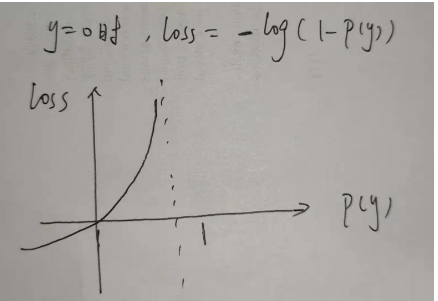 y=0时, loss = -log(1-p(y))
loss
p(y)
1